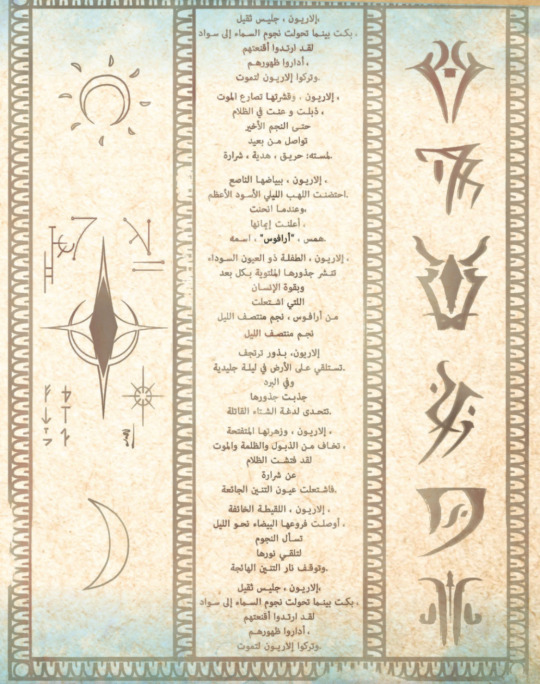 إلاريـون ، جليـس ثقيل،
بكـت بينمـا تحولت نجوم السمـاء إلى سـواد ،
لقـد ارتـدوا أقنعتهم
أداروا ظهورهـم ،
وتركوا إلاريـون لتموت.
إلاريـون ، وقشرتهـا تصارع الموت ،
ذبلت و عنت في الظلام ،
حتـى النجم الأخير
تواصل مـن بعيد
لمسـته: حريـق ، هدية ، شرارة.
إلاريـون ، ببياضهـا الناصع ،
احتضنـت اللهـب الليلي الأسـود الأعظم.
وعندمـا انحنت،
أعلنـت إيمانها ،
همس ، "أرافوس" ، اسـمه.
إلاريـون ، الطفلـة ذو العيون السـوداء ،
تنـشر جذورهـا الملتوية بـكل بعد
وبقوة الإنسـان
اللتي اشـتعلت
مـن أرافـوس ، نجم منتصـف الليل
نجـم منتصـف الليل
إلاريون، بـذور ترتجف
تسـتلقي عـلى الأرض في ليلـة جليدية.
وفي البرد
جذبـت جذورها
تتحـدى لدغـة الشـتاء القاتلة.
إلاريـون ، وزهرتهـا المتفتحة ،
تخـاف مـن الذبـول والظلمة والموت ،
لقد فتشـت الظلام
عن شرارة
فاشـتعلت عيـون التنـين الجائعة.
إلاريـون ، اللقيطـة الخائفة ،
أوصلـت فروعهـا البيضاء نحـو الليل ،
تسـأل النجوم
لتلقـي نورها
وتوقـف نار التنـين الهائجة.
إلاريـون ، جليـس ثقيل،
بكـت بينمـا تحولت نجوم السمـاء إلى سـواد ،
لقـد ارتـدوا أقنعتهم
أداروا ظهورهـم ،
وتركوا إلاريـون لتموت.